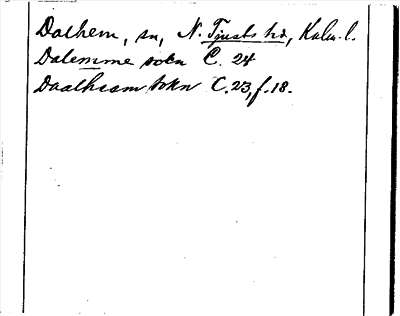 Dalhem, sn, N. Tjusts hd, Kalm. l.
Dalemme sokn C. 24
Daalheam sokn C. 23, f. 18.